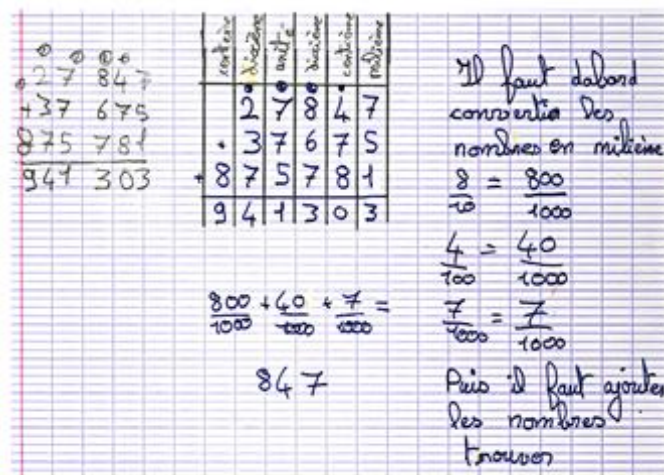 27 847
+37 675
875 781
941 303
centaine dizaine unité dixième centième millième
2 7 8 4 7
+ 3 7 6 7 5
+ 8 7 5 7 8 1
9 4 1 3 0 3
800/1000 + 40/1000 + 7/1000 =
847
Il faut dabord
convertir des
nombres en milième
8/10 = 800/1000
4/100 = 40/1000
7/1000 = 7/1000
Puis il faut ajouter
les nombres
trouver